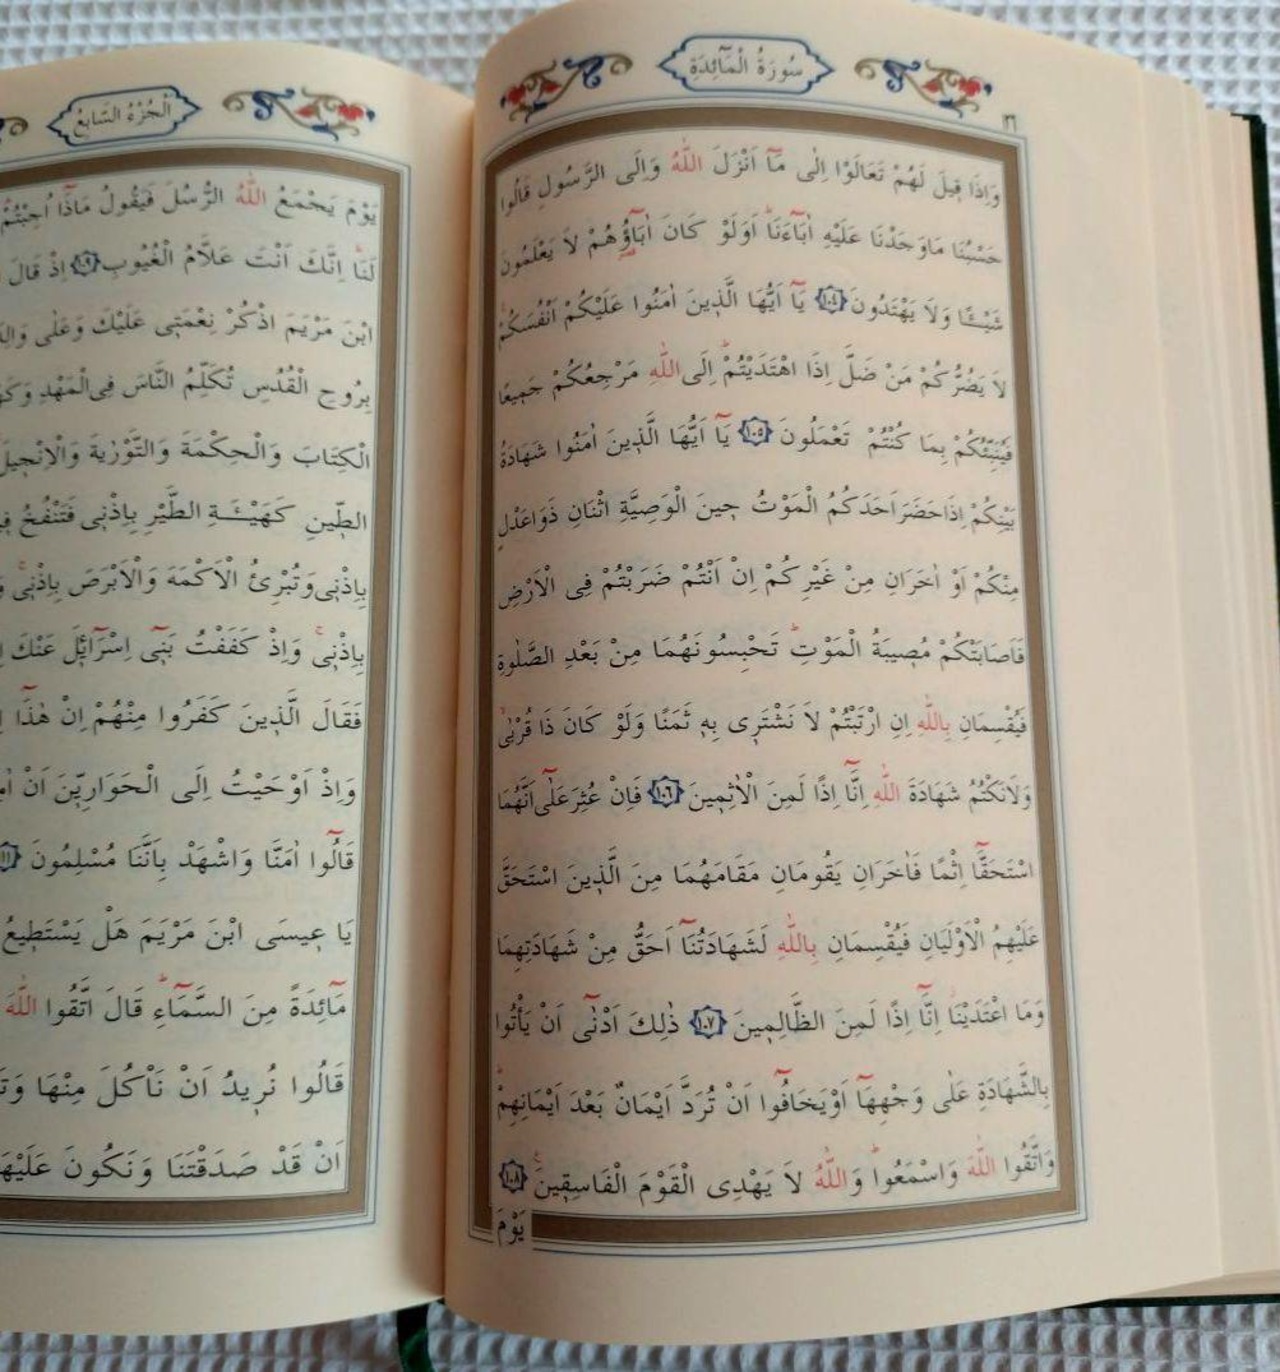 سُورَةُ الْمَآئِدَةِ
وَاِذَا قِيلَ لَهُمْ تَعَالَوْا اِلٰى مَآ اَنْزَلَ اللّٰهُ وَاِلَى الرَّسُولِ قَالُوا
حَسْبُنَا مَاوَجَدْنَا عَلَيْهِ اٰبَآءَنَاۜ اَوَلَوْ كَانَ اٰبَآؤُ۬هُمْ لَا يَعْلَمُونَ
شَيْـًٔا وَلَا يَهْتَدُونَ ﴿١٠٤﴾ يَآ اَيُّهَا الَّذِينَ اٰمَنُوا عَلَيْكُمْ اَنْفُسَكُمْۚ
لَا يَضُرُّكُمْ مَنْ ضَلَّ اِذَا اهْتَدَيْتُمْۜ اِلَى اللّٰهِ مَرْجِعُكُمْ جَمِيعًا
فَيُنَبِّئُكُمْ بِمَا كُنْتُمْ تَعْمَلُونَ ﴿١٠٥﴾ يَآ اَيُّهَا الَّذِينَ اٰمَنُوا شَهَادَةُ
بَيْنِكُمْ اِذَاحَضَرَاَحَدَكُمُ الْمَوْتُ حِينَ الْوَصِيَّةِ اثْنَانِ ذَوَاعَدْلٍ
مِنْكُمْ اَوْ اٰخَرَانِ مِنْ غَيْرِكُمْ اِنْ اَنْتُمْ ضَرَبْتُمْ فِى الْاَرْضِ
فَاَصَابَتْكُمْ مُصِيبَةُ الْمَوْتِۜ تَحْبِسُونَهُمَا مِنْ بَعْدِ الصَّلٰوةِ
فَيُقْسِمَانِ بِاللّٰهِ اِنِ ارْتَبْتُمْ لَا نَشْتَرِى بِهِ ثَمَنًا وَلَوْ كَانَ ذَا قُرْبٰىۙ
وَلَانَكْتُمُ شَهَادَةَ اللّٰهِ اِنَّآ اِذًا لَمِنَ الْاٰثِمِينَ ﴿١٠٦﴾ فَاِنْ عُثِرَعَلٰٓى اَنَّهُمَا
اسْتَحَقَّآ اِثْمًا فَاٰخَرَانِ يَقُومَانِ مَقَامَهُمَا مِنَ الَّذِينَ اسْتَحَقَّ
عَلَيْهِمُ الْاَوْلَيَانِ فَيُقْسِمَانِ بِاللّٰهِ لَشَهَادَتُنَآ اَحَقُّ مِنْ شَهَادَتِهِمَا
وَمَا اعْتَدَيْنَاۘ اِنَّآ اِذًا لَمِنَ الظَّالِمِينَ ﴿١٠٧﴾ ذٰلِكَ اَدْنٰٓى اَنْ يَأْتُوا
بِالشَّهَادَةِ عَلٰى وَجْهِهَآ اَوْيَخَافُٓوا اَنْ تُرَدَّ اَيْمَانٌ بَعْدَ اَيْمَانِهِمْۜ
وَاتَّقُوا اللّٰهَ وَاسْمَعُواۜ وَاللّٰهُ لَا يَهْدِى الْقَوْمَ الْفَاسِقِينَ۟ ﴿١٠٨﴾
يَوْمَ
اَلْجُزْءُ السَّابِعُ
يَوْمَ يَجْمَعُ اللّٰهُ الرُّسُلَ فَيَقُولُ مَاذَآ اُجِبْتُمْ
لَنَاۜ اِنَّكَ اَنْتَ عَلَّامُ الْغُيُوبِ ﴿١٠٩﴾ اِذْ قَالَ
ابْنَ مَرْيَمَ اذْكُرْ نِعْمَتِى عَلَيْكَ وَعَلٰى
بِرُوحِ الْقُدُسِ تُكَلِّمُ النَّاسَ فِى الْمَهْدِ
الْكِتَابَ وَالْحِكْمَةَ وَالتَّوْرٰيةَ وَالْاِنْجِيلَ
الطِّينِ كَهَيْـَٔةِ الطَّيْرِ بِاِذْنِى فَتَنْفُخُ
بِاِذْنِى وَتُبْرِئُ الْاَكْمَهَ وَالْاَبْرَصَ بِاِذْنِىۚ
بِاِذْنِىۚ وَاِذْ كَفَفْتُ بَنِٓى اِسْرَآئِلَ عَنْكَ
فَقَالَ الَّذِينَ كَفَرُوا مِنْهُمْ اِنْ هٰذَآ
وَاِذْ اَوْحَيْتُ اِلَى الْحَوَارِيِّنَ اَنْ
قَالُٓوا اٰمَنَّا وَاشْهَدْ بِاَنَّنَا مُسْلِمُونَ
يَا عِيسَى ابْنَ مَرْيَمَ هَلْ يَسْتَطِيعُ
مَآئِدَةً مِنَ السَّمَآءِۜ قَالَ اتَّقُوا اللّٰهَ
قَالُوا نُرِيدُ اَنْ نَأْكُلَ مِنْهَا
اَنْ قَدْ صَدَقْتَنَا وَنَكُونَ عَلَيْهَا